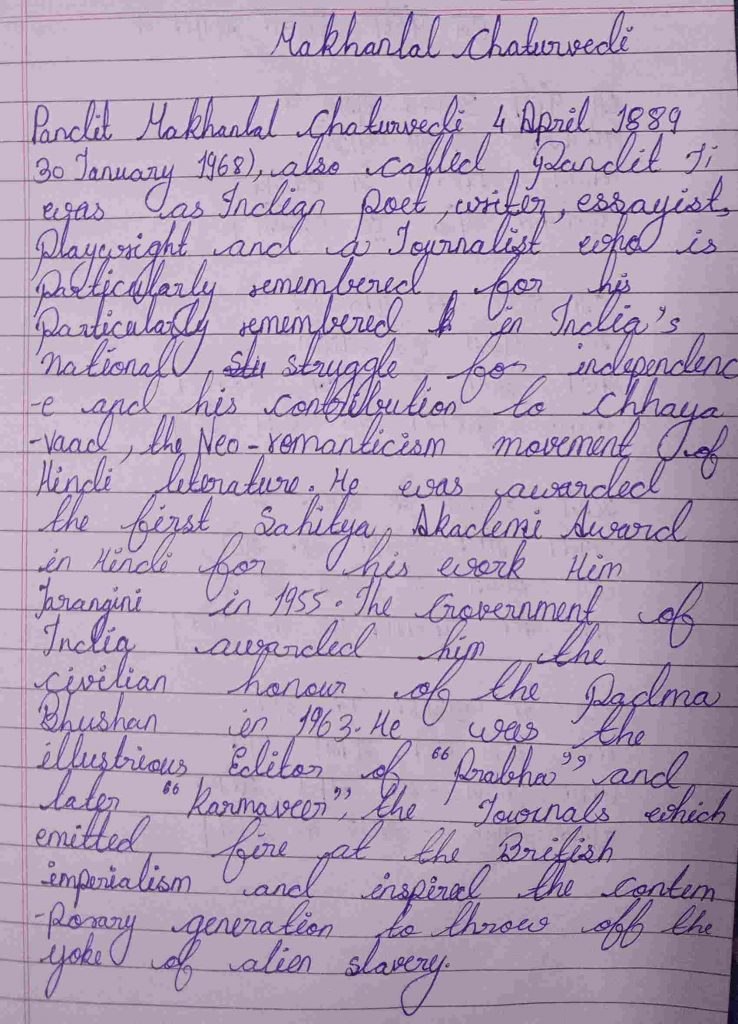 Makhanlal Chaturvedi
Pandit Makhanlal Chaturvedi 4 April 1889
30 January 1968), also called Pandit Ji
was as Indian poet, writer, essayist,
Playwright and a Journalist who is
particularly remembered for his
particularly remembered in India's
national struggle for independenc
-e and his contribution to Chhaya
-vaad, the Neo-romanticism movement of
Hindi literature. He was awarded
the first Sahitya Akademi Award
in Hindi for his work Him
Tarangini in 1955. The Government of
India awarded him the
civilian honour of the Padma
Bhushan in 1963. He was the
illustrious Editor of "Prabha" and
later "Karmaveer", the Journals which
emitted fire at the British
imperialism and inspired the contem
-porary generation to throw off the
yoke of alien slavery.